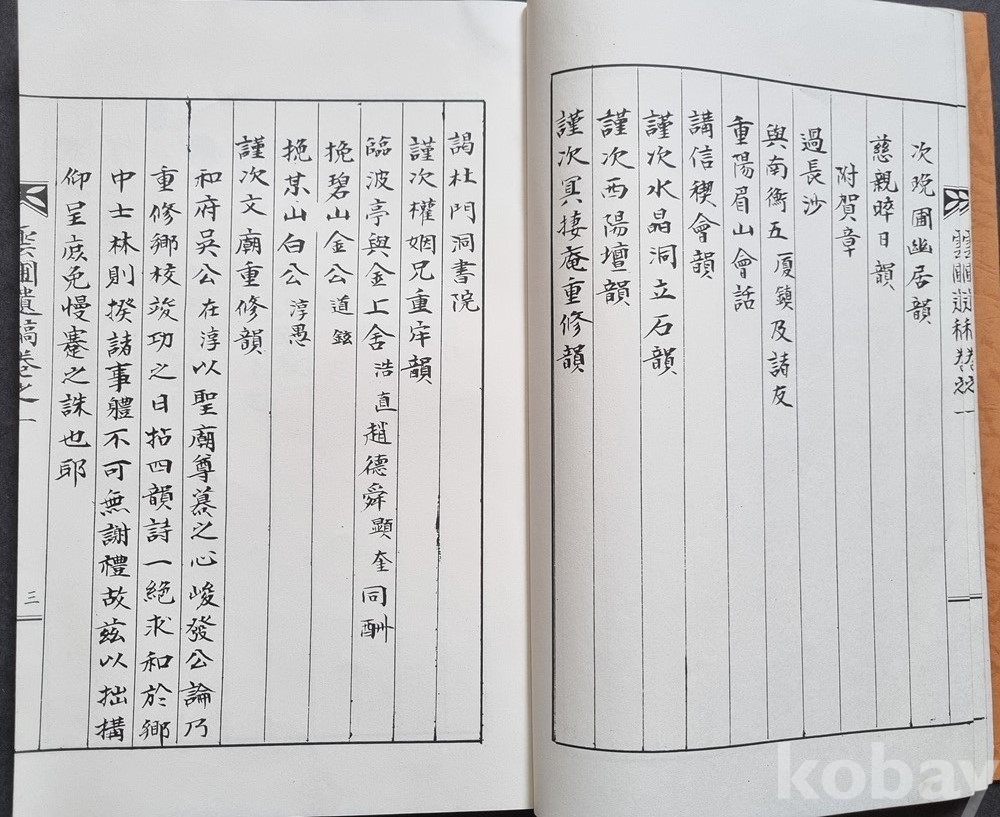 次晚圃幽居韻
慈親晬日韻
附賀章
過長沙
與南衡五廈鎭及諸友
重陽眉山會話
講信稧會韻
謹次水晶洞立石韻
謹次西陽壇韻
謹次冥捿庵重修韻
謁杜門洞書院
謹次權姻兄重牢韻
臨波亭與金上舍浩直趙德舜顯奎同酬
挽碧山金公道鉉
挽某山白公淳愚
謹次文廟重修韻
和府吳公在淳以聖廟尊慕之心峻發公論乃
重修鄉校竣功之日拈四韻詩一絶求和於鄉
中士林則揆諸事體不可無謝禮故玆以拙搆
仰呈庶免慢蹇之誅也耶
雲圃遺稿卷之一
三
kobay